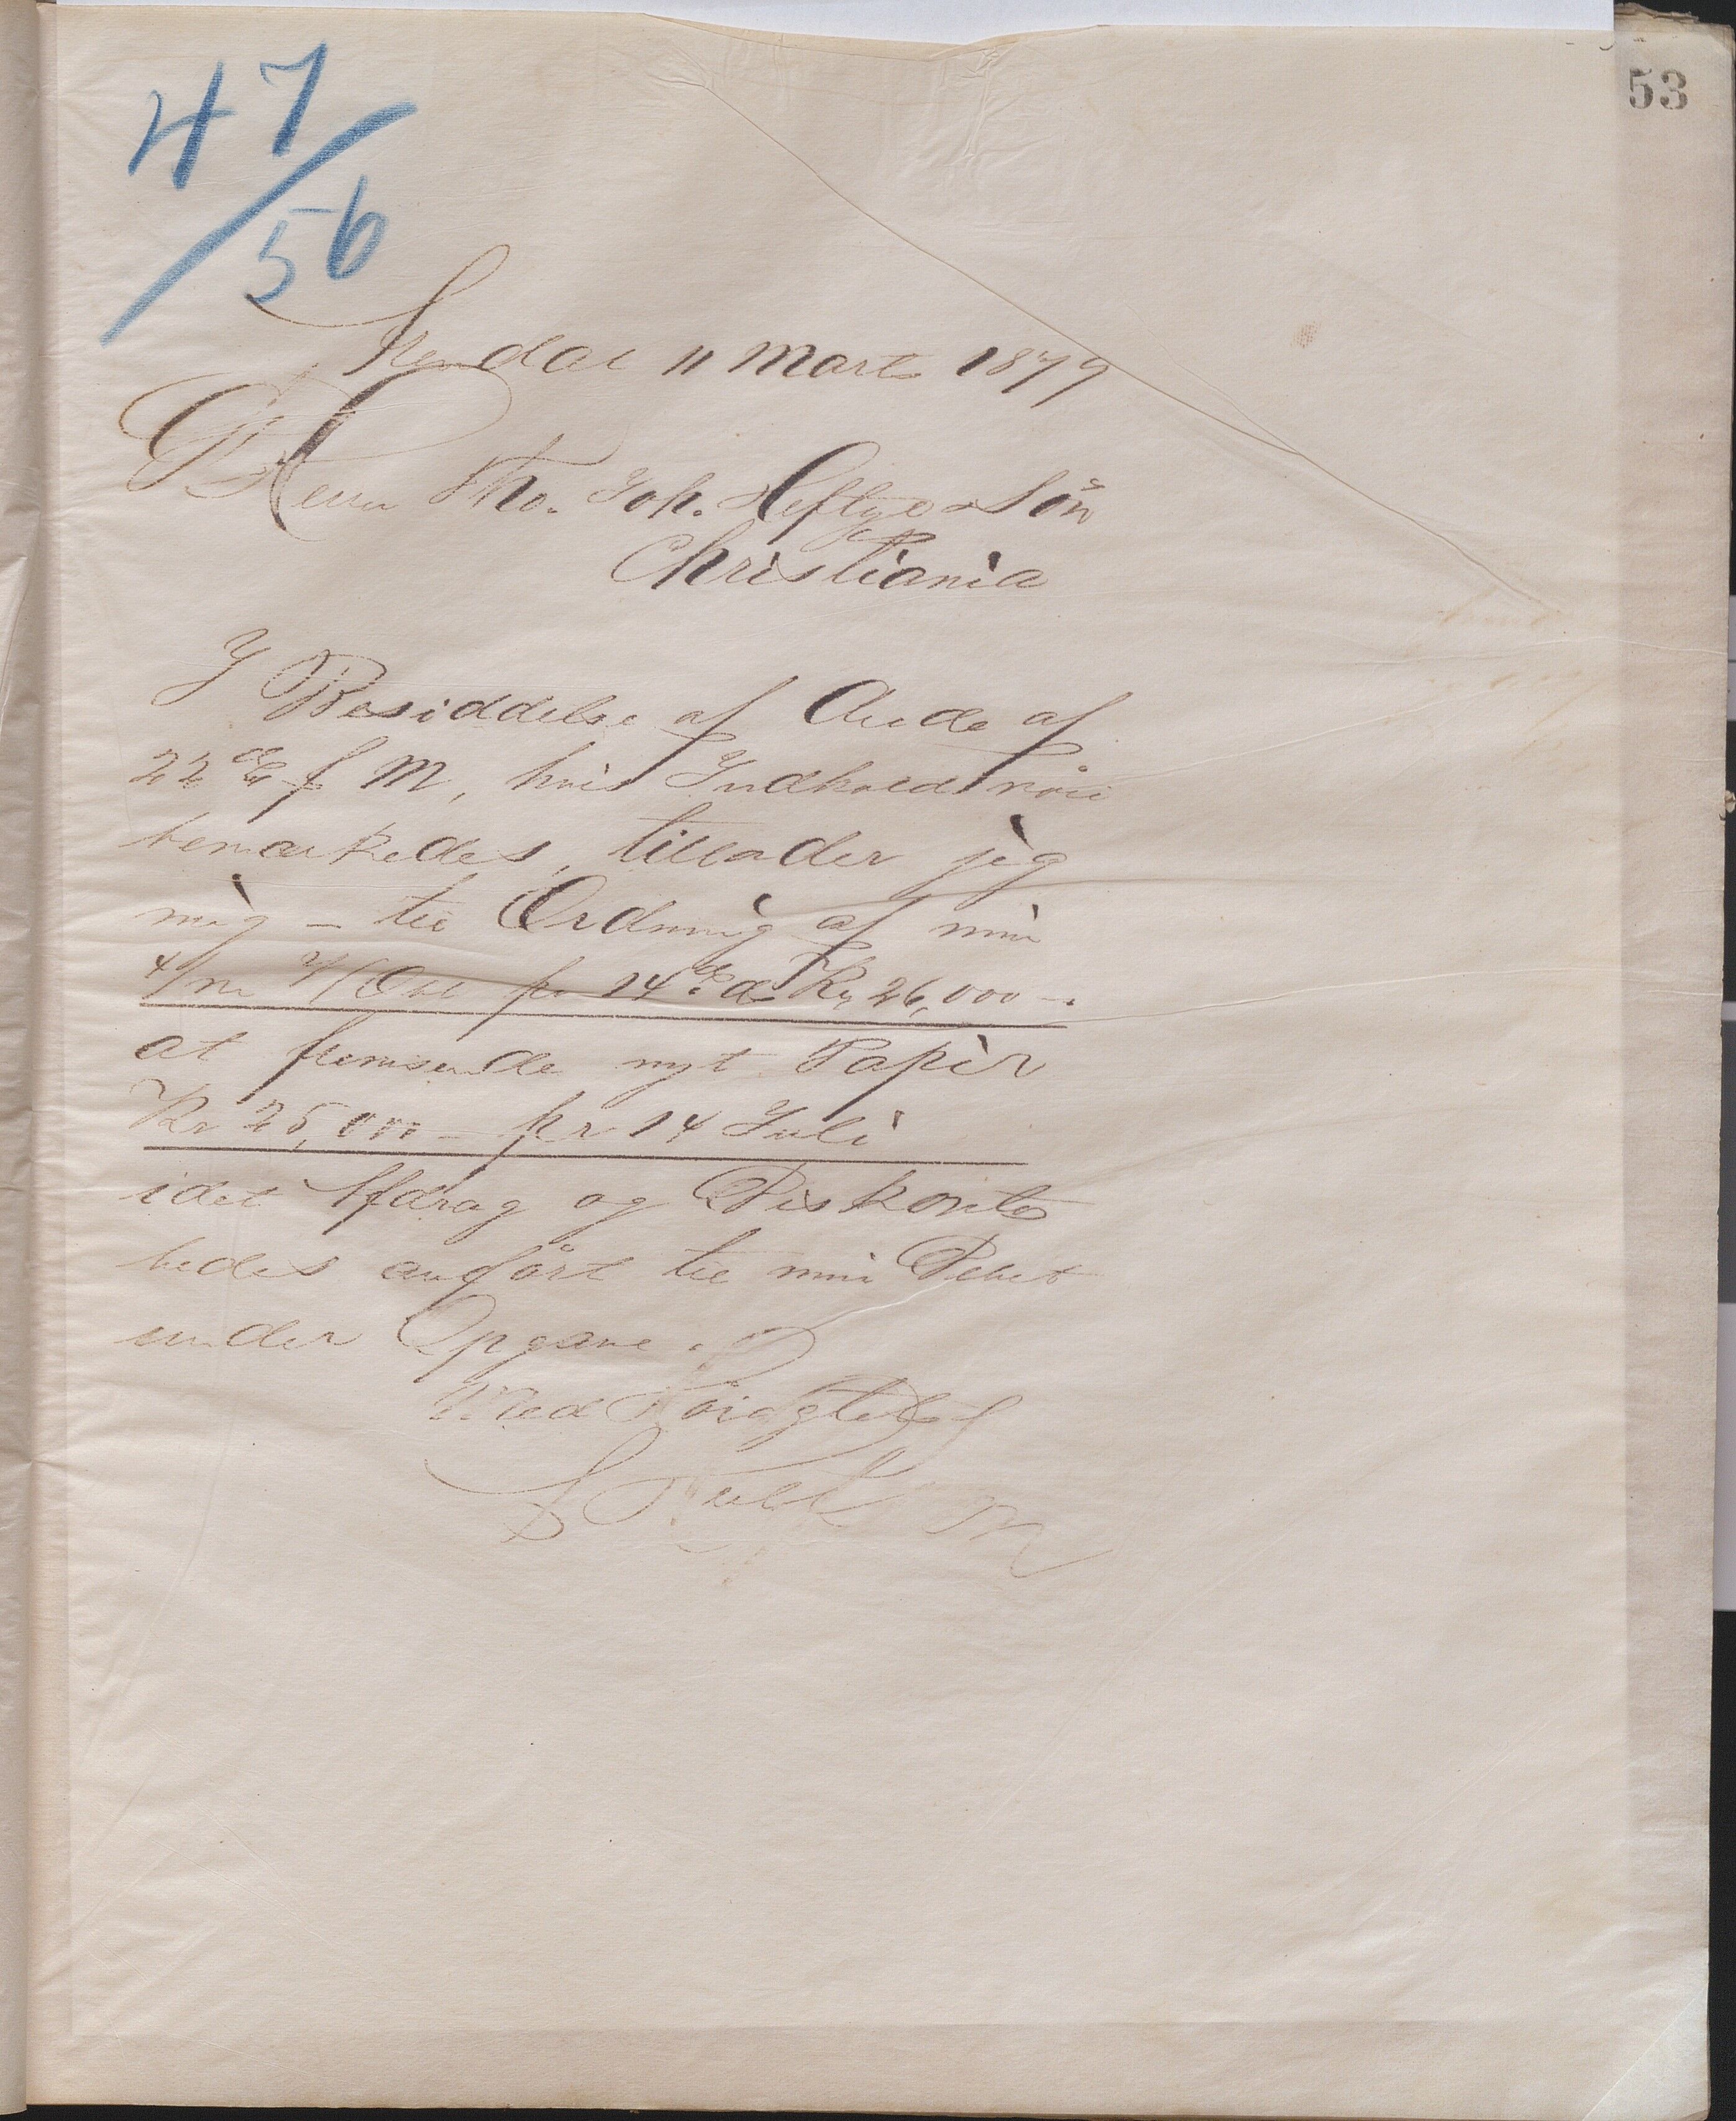 53
47
56
Lundal 11 Marts 1879
Herrer Tho. Joh. Heftye & Søn
Christiania
I Besiddelse af Ærede af
22de f M, hvis Indhold nøie
bemærkedes, tillader jeg
mig – til Ordning af min
4/m Obl pr 14de ds Kr 26,000 –.
at fremsende nyt Papir
Kr 25,000 – pr 14 Juli
idet Afdrag og Diskonto
bedes anført til min Debet
under Opgave.
Med Høiagtelse